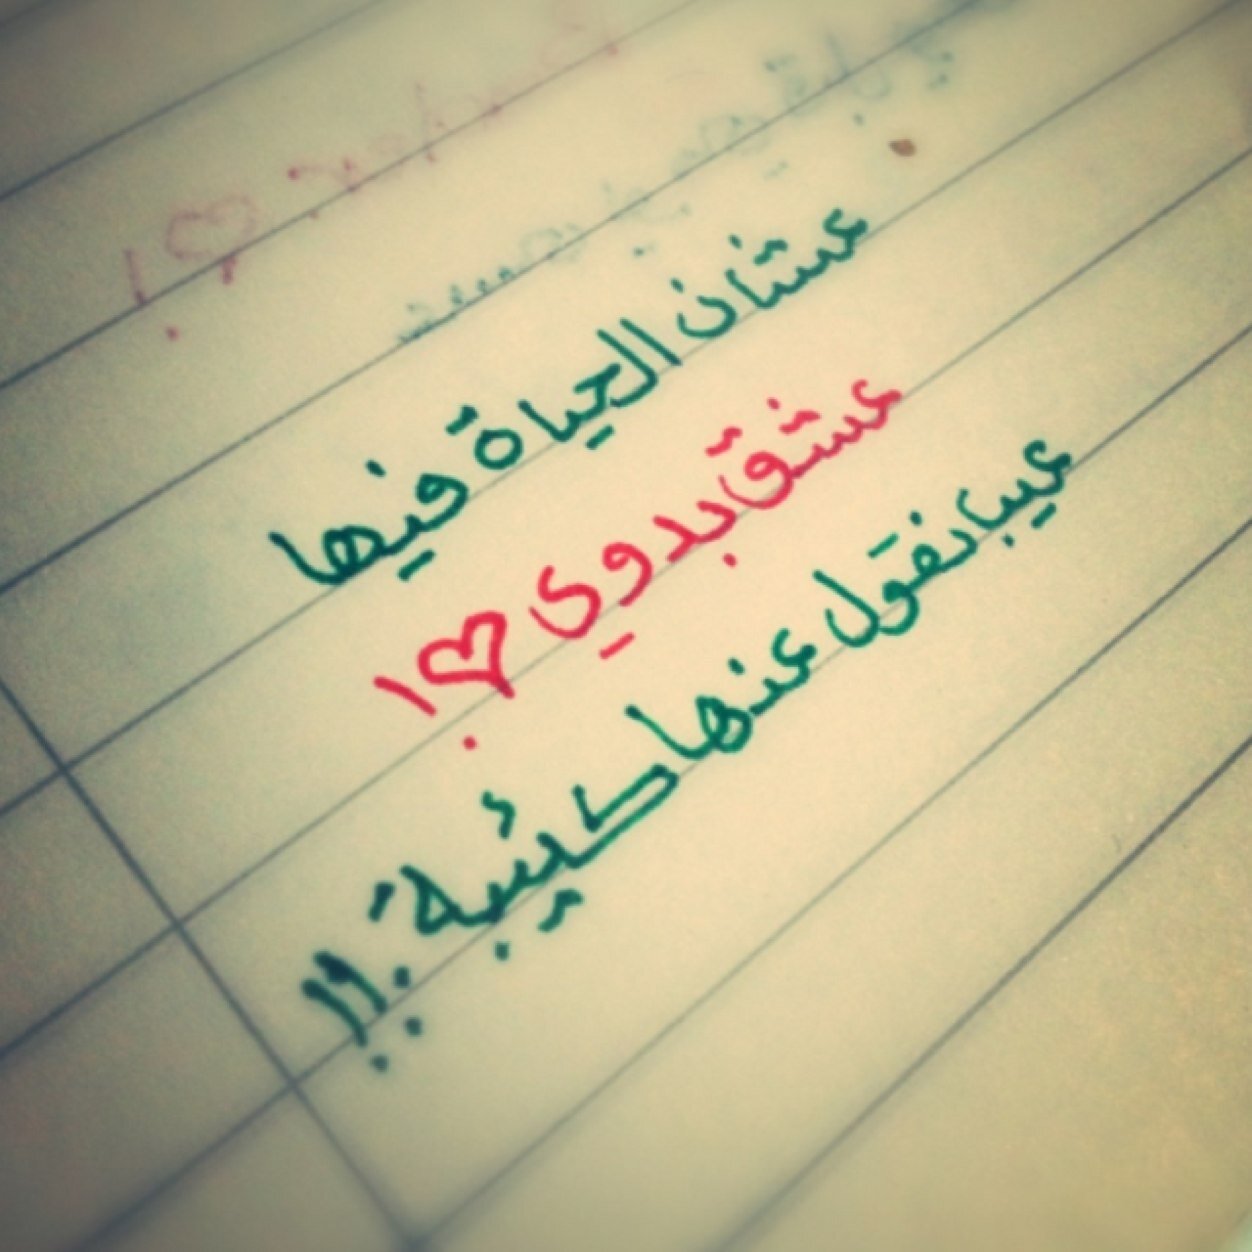 عشان الحياة فيها
عشق بدوي ♡!
عيب انقول عنها كئيبة .!!